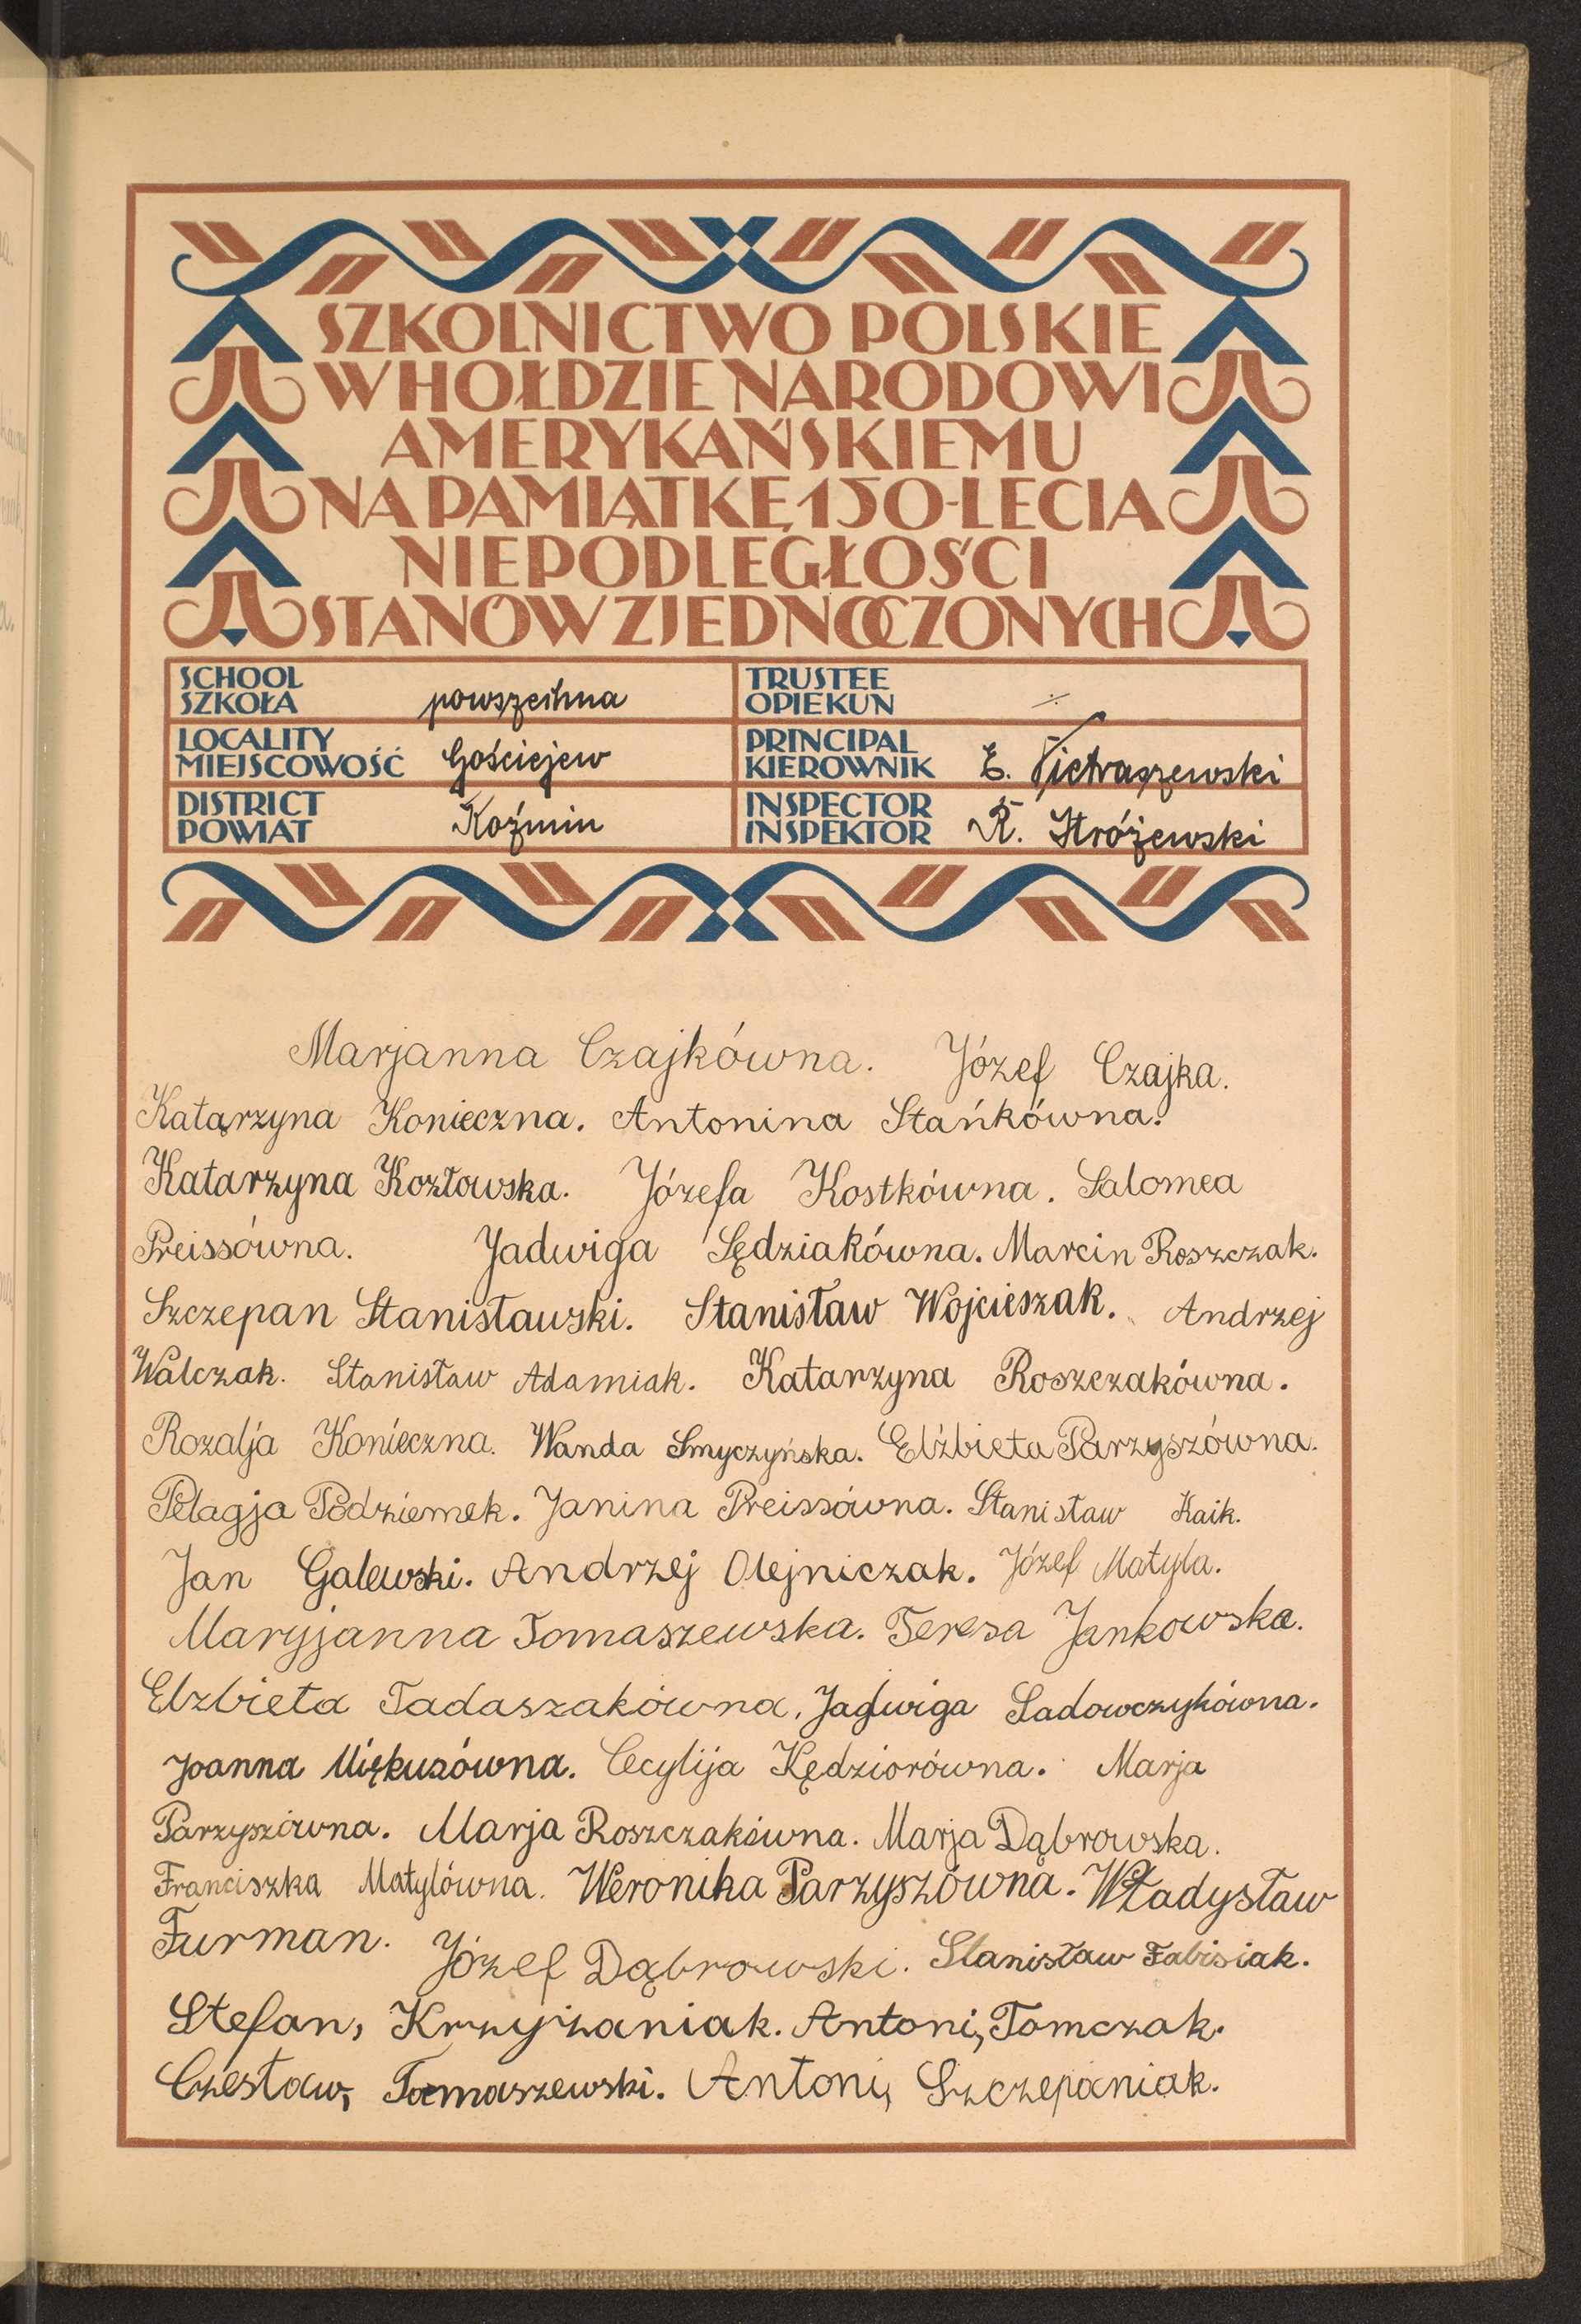 SZKOLNICTWO POLSKIE
W HOŁDZIE NARODOWI
AMERYKAŃSKIEMU
NA PAMIĄTKĘ 150-LECIA
NIEPODLEGŁOŚCI
STANÓW ZJEDNOCZONYCH
SCHOOL
SZKOŁA powszechna
TRUSTEE
OPIEKUN
LOCALITY
MIEJSCOWOŚĆ Gościejew
PRINCIPAL
KIEROWNIK E. Pietraszewski
DISTRICT
POWIAT Koźmin
INSPECTOR
INSPEKTOR R. Stróżewski
Marjanna Czajkówna. Józef Czajka.
Katarzyna Konieczna. Antonina Stańkówna.
Katarzyna Kozłowska. Józefa Kostkówna. Salomea
Preissówna. Jadwiga Sędziakówna. Marcin Roszczak.
Szczepan Stanisławski. Stanisław Wojcieszak. Andrzej
Walczak. Stanisław Adamiak. Katarzyna Roszczakówna.
Rozalja Konieczna. Wanda Smyczyńska. Elżbieta Parzyszówna.
Pelagja Podziemek. Janina Preissówna. Stanisław Kaik.
Jan Galewski. Andrzej Olejniczak. Józef Matyla.
Maryjanna Tomaszewska. Teresa Jankowska.
Elzbieta Tadaszakówna, Jadwiga Sadowczykówna.
Joanna Miękusówna. Cecylija Kędziorówna. Marja
Parzyszówna. Marja Roszczakówna. Marja Dąbrowska.
Franciszka Matylówna. Weronika Parzyszówna. Władysław
Furman. Józef Dąbrowski. Stanisław Fabisiak.
Stefan, Krzyżaniak. Antoni, Tomczak.
Czesław, Tomaszewski. Antoni, Szczepaniak.